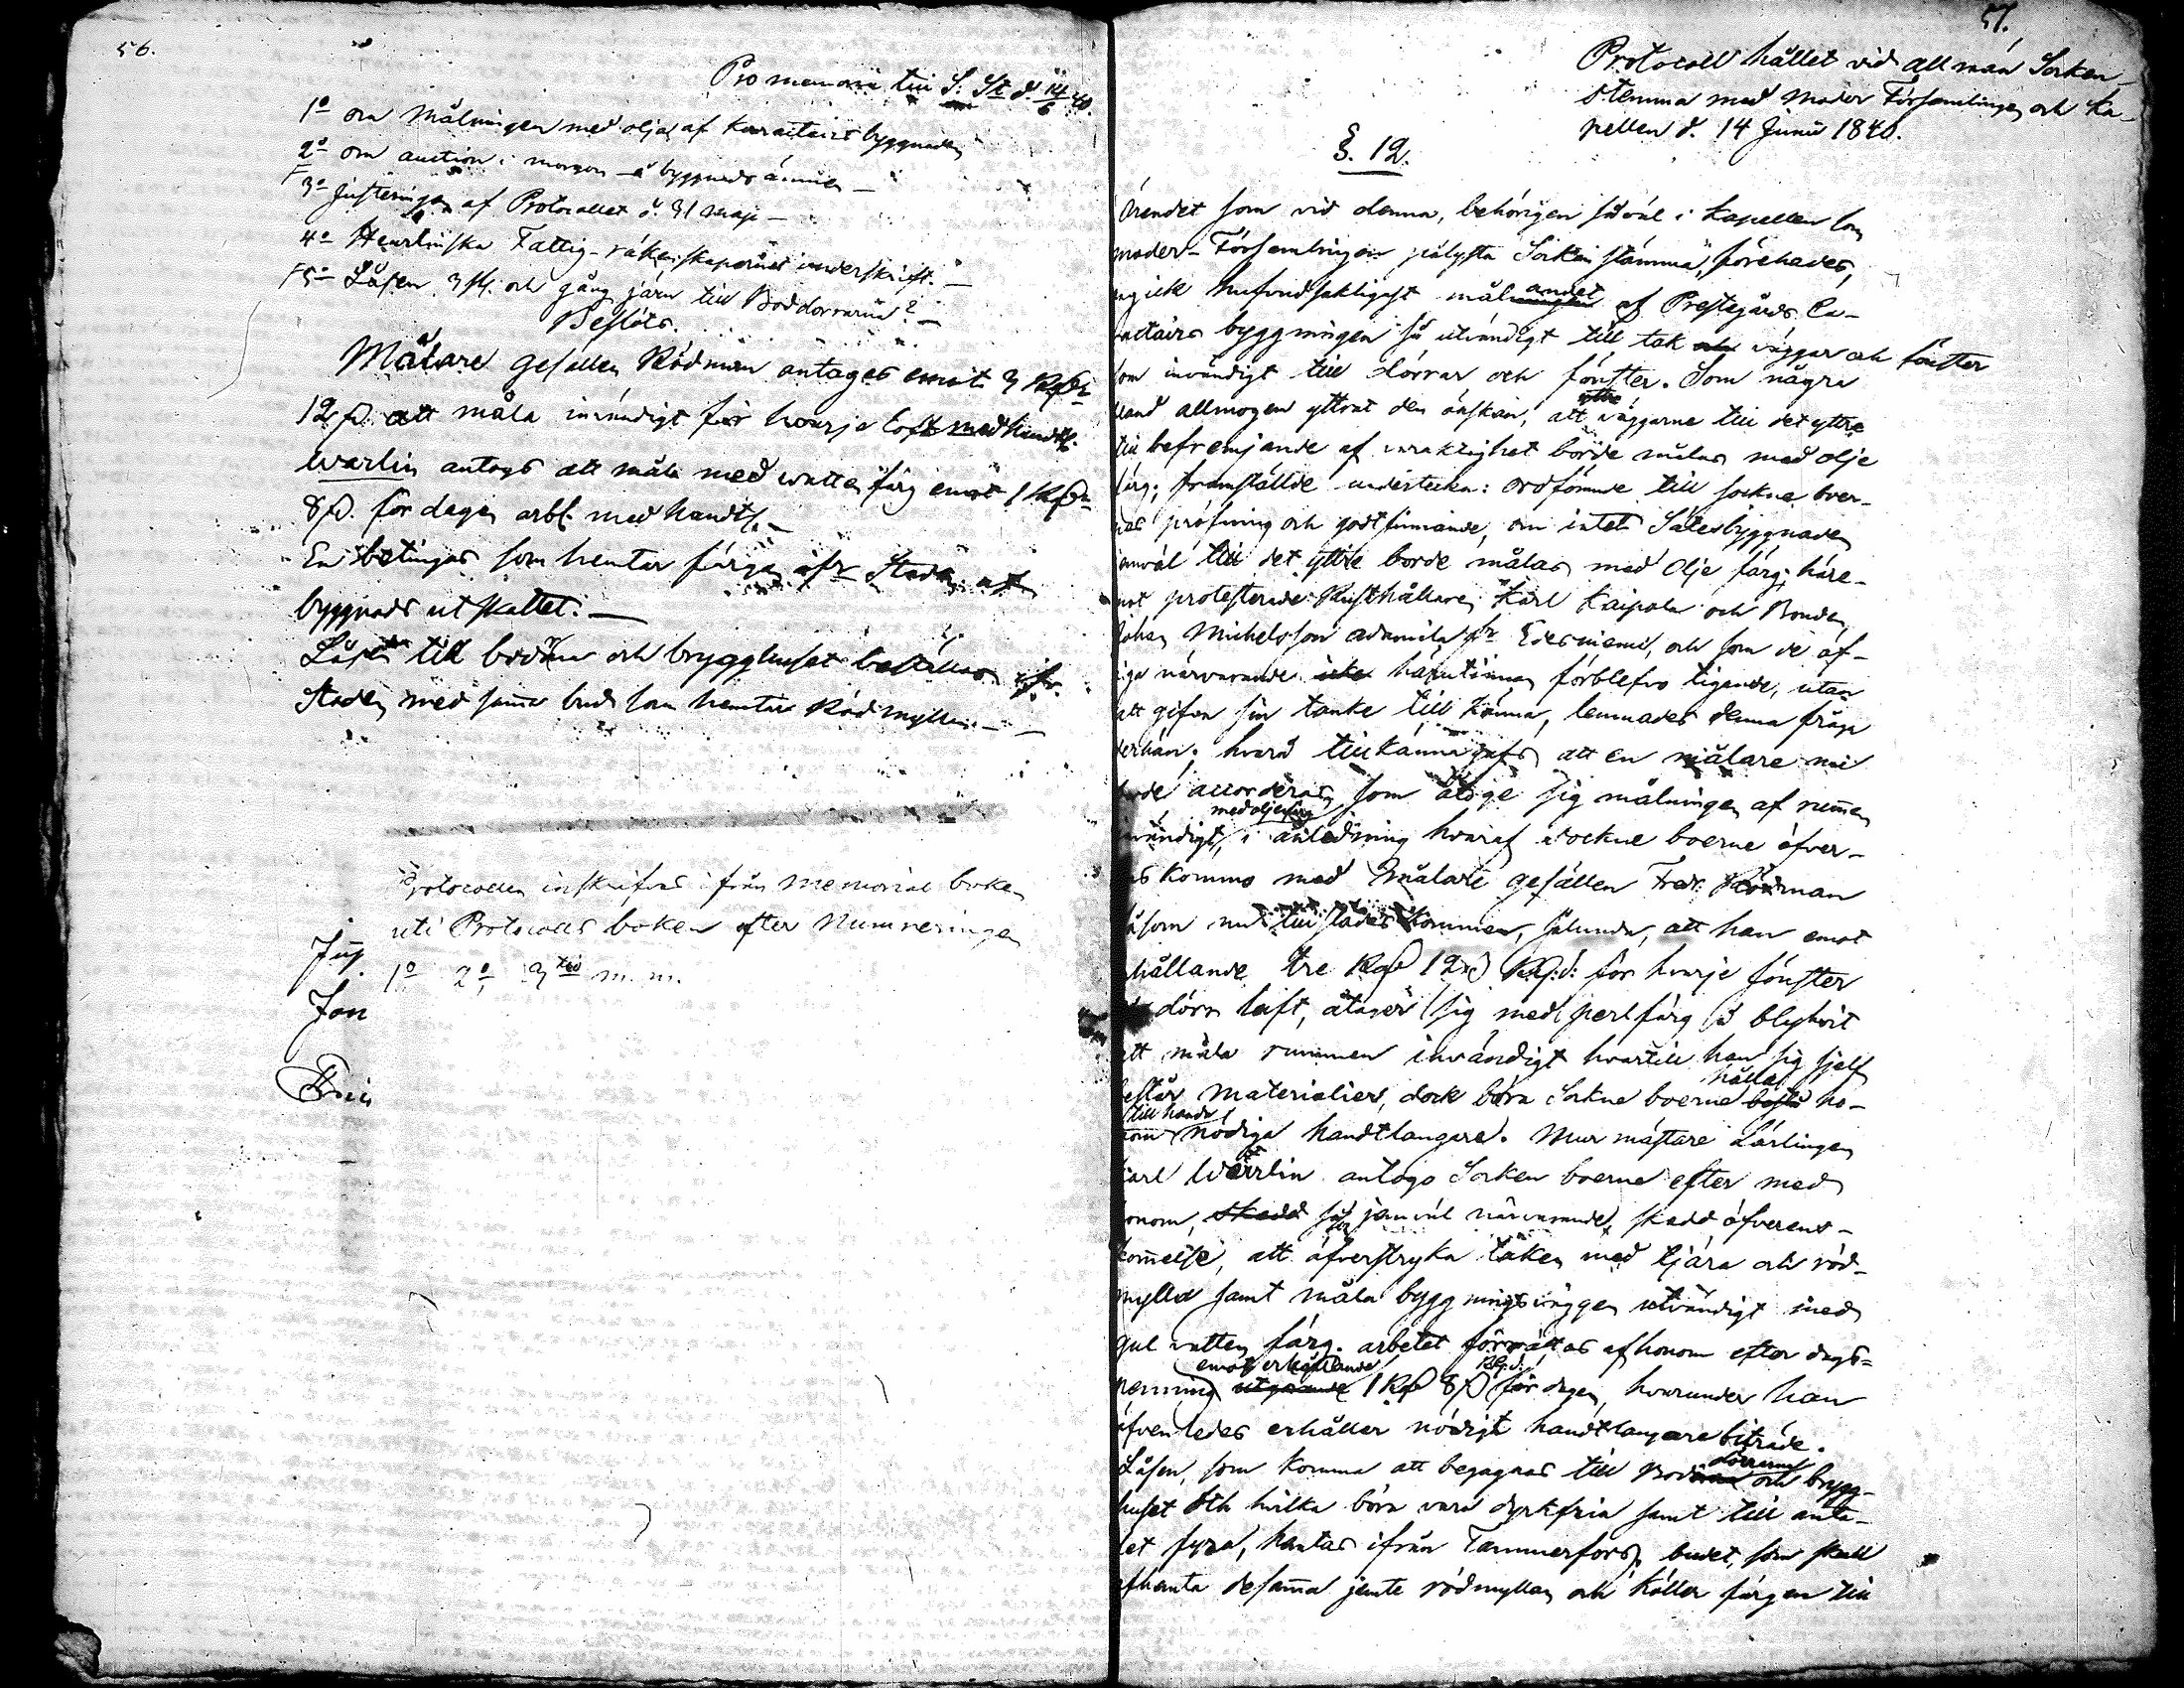 56.
Pro memoria till S: St d. 14/6 40.
1o om Målningen med oljan af Karactairs byggnaden
2o om auction i morgon å byggnads ämnen —
3o Justeringen af Protocollet d. 31 Maji —
4o Heurlinska Fattig-räkenskapernas underskrift. —
5o Låsen 3 st. och gång järn till Boddörrarna? —
Beslöts.
Målare Gesällen Rödman antages emot 3 Rub
12 att måla invändigt för hvarje Loft med handtl.
Warlin antogs att måla med watten färg emot 1 Rub
8 för dagen arbt. med handtl. —
En betingas som hemtar färgen ifr Staden af
byggnads utskottet. —
Låsen till bodarna och brygghuset beställas ifr.
Staden med samma bud som hemtar Rödmyllan. —
Protocollen inskrifvas ifrån memorial boken
uti Protocolls boken efter Numreringen
1o 2o 3tio m. m.
Jon
57.
Protocoll hållet vid allmän Socken
stemma med Moder Församlingen och Ka-
pellen d. 14 Junii 1840.
§. 12.
Ärendet som vid denna, behörigen såväl i Kapellen som
moder-Församlingen pålysta Sockenstämma, förehades,
angick hufvudsakligast målandet af Prestgårds Ca-
ractairs byggningen så utvändigt till tak väggar och fönster
som invändigt till dörrar och fönster. Som några
bland allmogen yttrat den önskan, att väggarne till det yttre
till befremjande af varaktighet borde målas med olje
färg; framställde undertecknad: ordförande till sockne boer-
nas pröfning och godtfinnande, om intet Sätesbyggnaden
jemväl till det yttre borde målas med Olje färg; häre-
mot protesterade Rusthållaren Karl Kaipola och Bonden
Johan Michelsson Adamila fr Edesniemi, och som de öf-
riga närvarande förblefvo tigande, utan
att gifva sin tanke till känna, lemnades denna fråga
derhän; hvard tillkänna gafs att en målare nu
borde accorderas, som åtoge sig målningen af rummen
invändigt med oljefärg, i anledning hvaraf sockne boerne öfver-
ens kommo med målare gesällen Fredr. Rödman
såsom nu tillstädes kommen, sålunda, att han emot
erhållande tre Rub 12 för hvarje fönster
dörr luft, åtager sig med perlfärg å blyhvit
att måla rummen invändigt hvartill han sig sjelf
består materialier, dock böra Sockne boerne hålla ho-
nom till handa nödiga handtlangare. Mur mästare Lärlingen
Karl Wärrlin antogo Socken boerne efter med
honom, skedd såsom jemväl närvarande, skedd öfverens-
kommelse, att öfverstryka taken med tjära och röd-
mylla samt måla byggningsväggen utvändigt med
gul vatten färg. arbetet förrättas af honom efter dags-
penning emot erhållande 1 Rub 8 för dagen, hvarunder han
äfvenledes erhåller nödigt handtlangare biträde.
Låsen, som komma att begagnas till Bod dörrarne och brygg-
huset och hvilka böra vara dyrkfria samt till anta-
let fyra, hemtas ifrån Tammerfors, budet, som skall
afhemta desamma jemte rödmyllan och Kåller färgen till